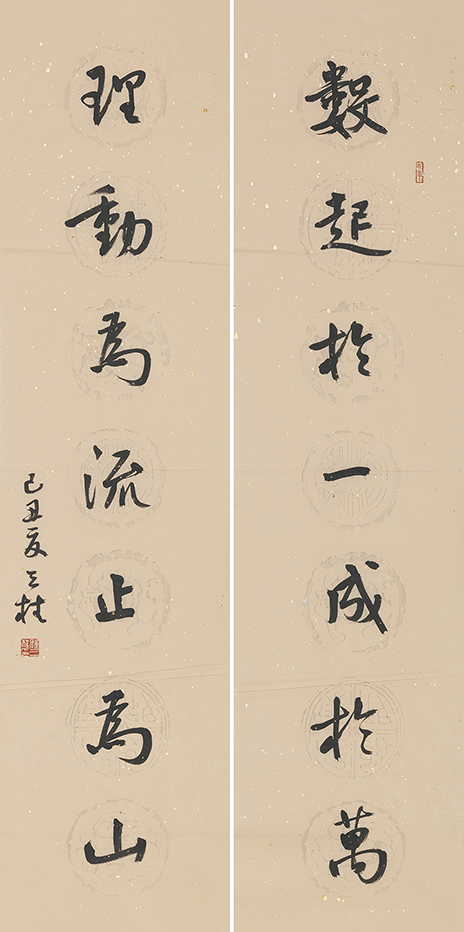 數起於一成於萬
理動為流止為山
己丑夏三桂